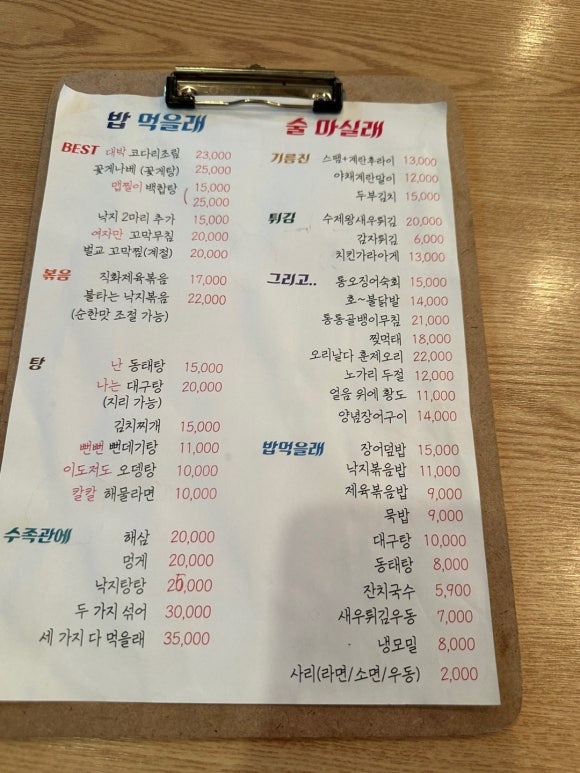 밥 먹을래
BEST 대박 코다리조림 23,000
꽃게나베 (꽃게탕) 25,000
맵찔이 백합탕 15,000
( 25,000
낙지 2마리 추가 15,000
여자만 꼬막무침 20,000
벌교 꼬막찜(계절) 20,000
볶음 직화제육볶음 17,000
불타는 낙지볶음 22,000
(순한맛 조절 가능)
탕 난 동태탕 15,000
나는 대구탕 20,000
(지리 가능)
김치찌개 15,000
뻔뻔 뻔데기탕 11,000
이도저도 오뎅탕 10,000
칼칼 해물라면 10,000
수족관에 해삼 20,000
멍게 20,000
낙지탕탕 25,000
두 가지 섞어 30,000
세 가지 다 먹을래 35,000
술 마실래
기름진 스팸+계란후라이 13,000
야채계란말이 12,000
두부김치 15,000
튀김 수제왕새우튀김 20,000
감자튀김 6,000
치킨가라아게 13,000
그리고.. 통오징어숙회 15,000
호~불닭발 14,000
통통골뱅이무침 21,000
찢먹태 18,000
오리날다 훈제오리 22,000
노가리 두절 12,000
얼음 위에 황도 11,000
양념장어구이 14,000
밥먹을래 장어덮밥 15,000
낙지볶음밥 11,000
제육볶음밥 9,000
묵밥 9,000
대구탕 10,000
동태탕 8,000
잔치국수 5,900
새우튀김우동 7,000
냉모밀 8,000
사리(라면/소면/우동) 2,000